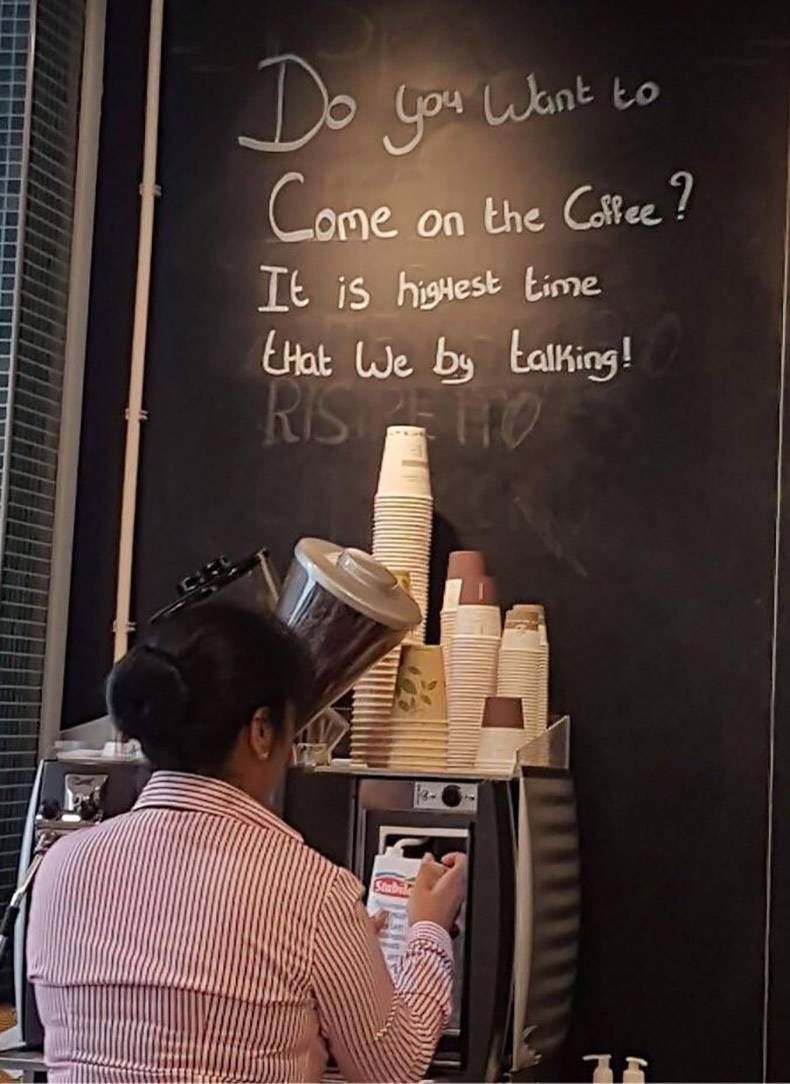 Do you Want to
Come on the Coffee?
It is higHest time
tHat We by talking!
RISTRETTO